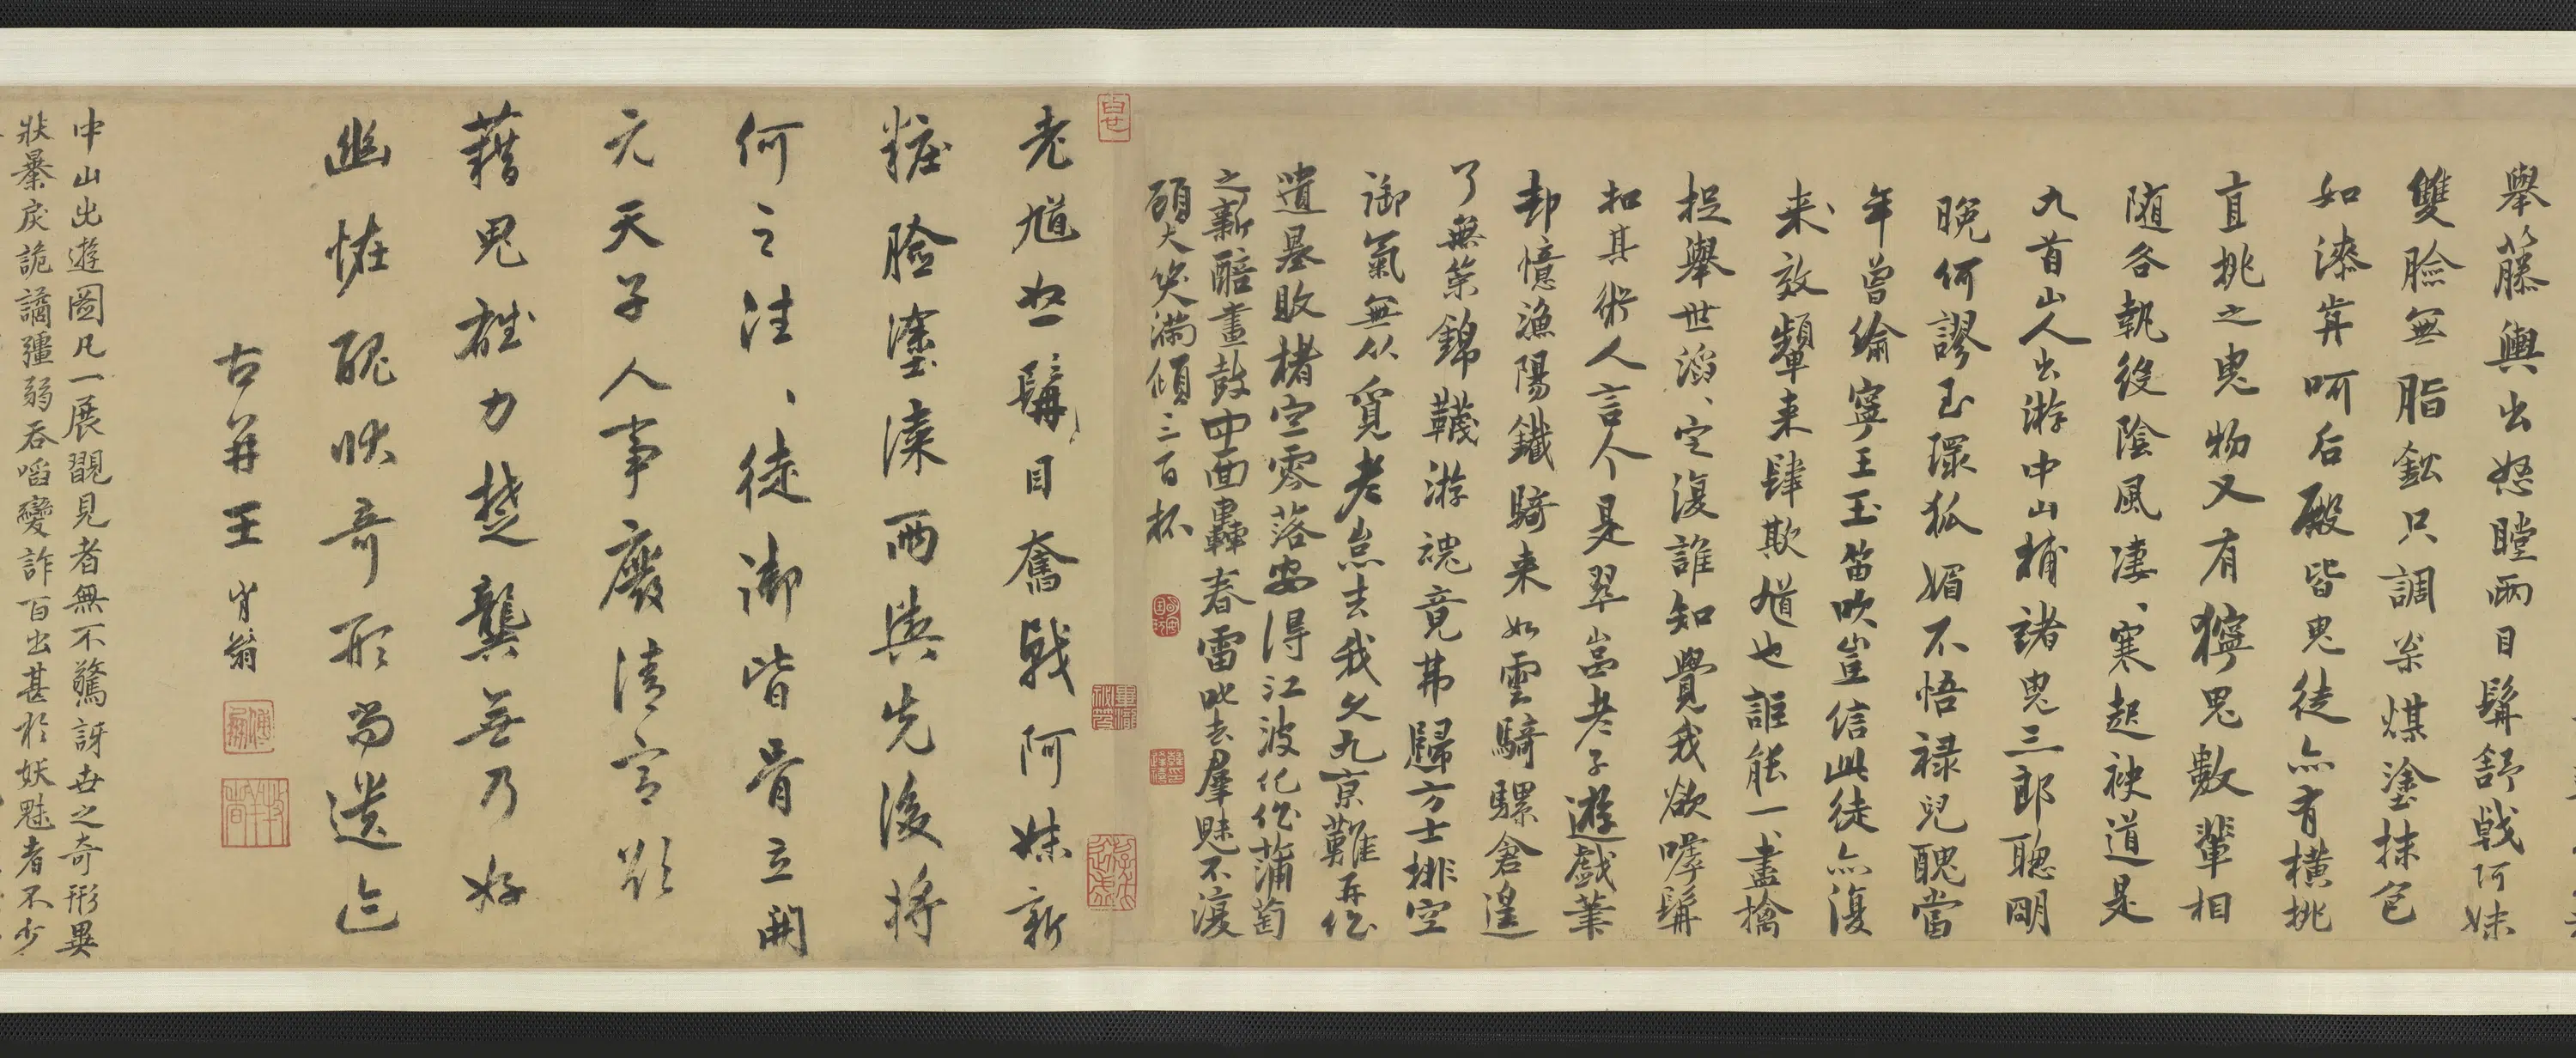 舉藤輿出怒瞠兩目髯舒戟阿妹
雙臉無脂鉛只調柴煤塗抹色
如漆笄呵后殿皆鬼徒亦有橫挑
直挑之鬼物又有獰鬼數輩相
随各執役陰風凄、寒起袂道是
九首山人出游中山捕諸鬼三郎聰明
晚何謬玉環狐媚不悟禄兒醜當
年曾偷寧王玉笛吹豈信此徒亦復
来、效顰来肆欺馗也誰能一、盡擒
捉舉世滔、定復誰知覺我欲嘑髯
扣其術人言个是翠嵓老子遊戲筆
却憶漁陽鐵騎来如雲騎騾倉遑
了無策錦韈游魂竟弗歸方士排空
御氣無从覓老嵓去我久九京難再作
遺墨敗楮空零落安得江波化作蒲萄
之新醅畫鼓四面轟春雷叱去羣魅不復
顧大笑滿傾三百杯
老馗怒髯目奮戟阿妹新
粧臉塗漆兩輿先後將
何之往、徒御皆骨立開
元天子人事廢清宫欲
藉鬼雄力楚龔無乃好
幽怪醜狀奇形尚遺迹
古并王肖翁
中山出遊圖凡一展翫見者無不驚訝世之奇形異
狀暴戾詭譎彊弱吞啗變詐百出甚於妖魅者不少